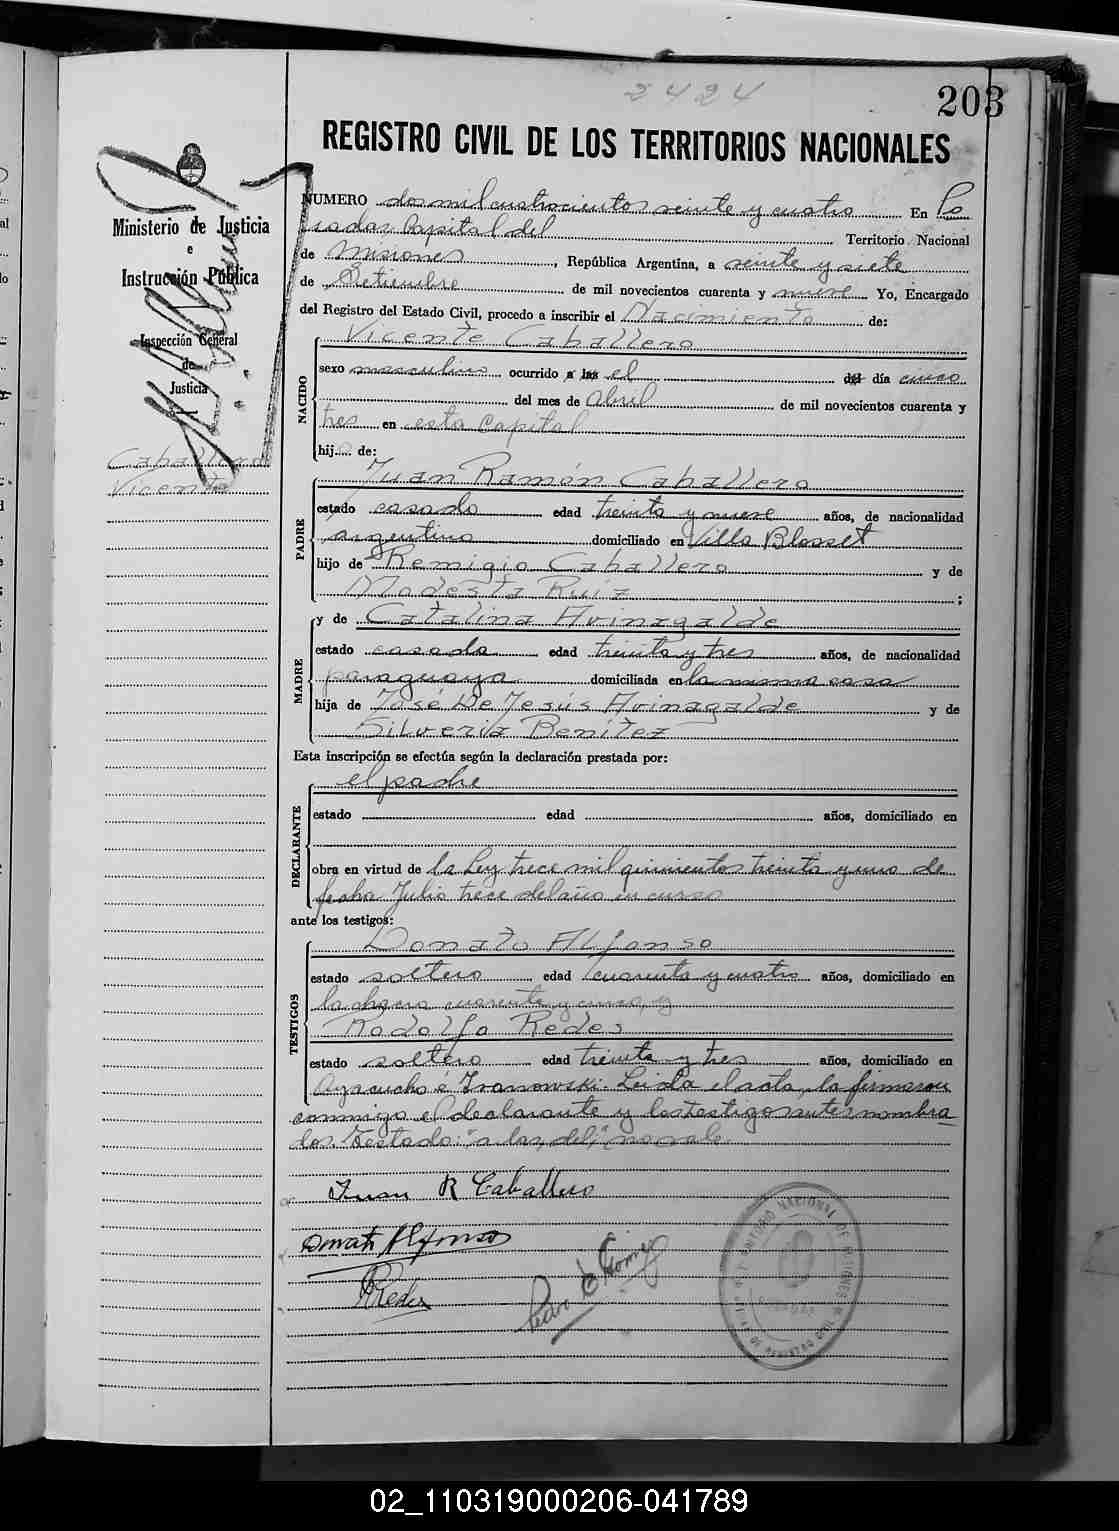 2424
203
REGISTRO CIVIL DE LOS TERRITORIOS NACIONALES
Ministerio de Justicia
e
Instrucción Pública
Inspección General
de
Justicia
Caballero
Vicente
NUMERO dos mil cuatrocientos veinte y cuatro En Po
sadas Capital del Territorio Nacional
de Misiones, República Argentina, a veinte y siete
de Setiembre de mil novecientos cuarenta y nueve Yo, Encargado
del Registro del Estado Civil, procedo a inscribir el Nacimiento de:
NACIDO
Vicente Caballero
sexo masculino ocurrido a las el del día cinco
del mes de abril de mil novecientos cuarenta y
tres en esta Capital
hijo de:
PADRE
Juan Ramón Caballero
estado casado edad treinta y nueve años, de nacionalidad
argentino domiciliado en Villa Blosset
hijo de Remigio Caballero y de
Modesta Ruiz;
MADRE
y de Catalina Avinagalde
estado casada edad treinta y tres años, de nacionalidad
paraguaya domiciliada en la misma casa
hija de José De Jesús Avinagalde y de
Silveria Benítez
Esta inscripción se efectúa según la declaración prestada por:
DECLARANTE
el padre
estado edad años, domiciliado en
obra en virtud de la Ley trece mil quinientos treinta y uno de
fecha Julio trece del año en curso
ante los testigos:
TESTIGOS
Donato Alfonso
estado soltero edad cuarenta y cuatro años, domiciliado en
la chacra cuarenta y cinco, y
Rodolfo Redes
estado soltero edad treinta y tres años, domiciliado en
Ayacucho e Ivanowski. Leida el acta, la firmaron
conmigo el declarante y los testigos antes nombra
dos. Testado: "a las, del," no vale.
Juan R Caballero
Donato Alfonso
RRedes
Pedro E Gomez
TERRITORIO NACIONAL DE MISIONES
02_110319000206-041789